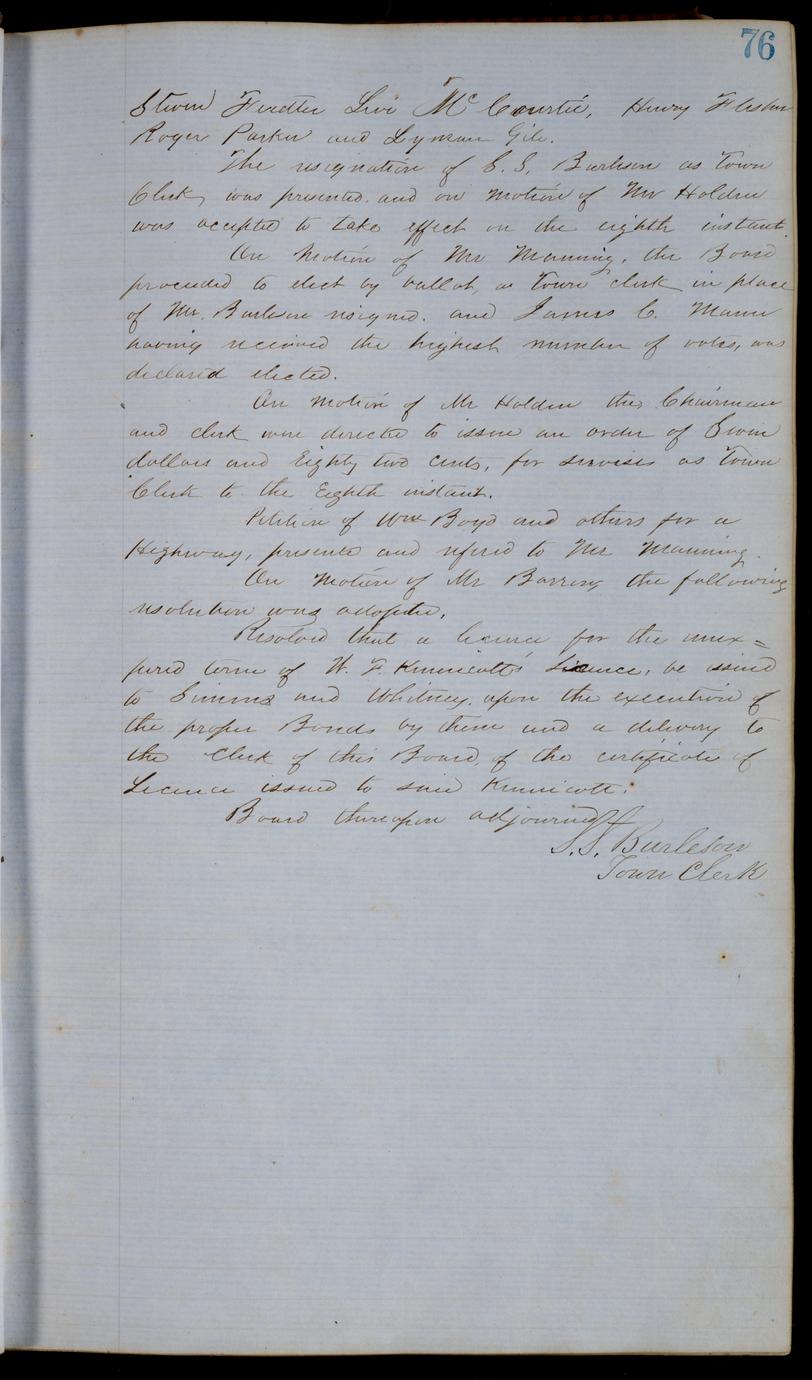 76
Levi McCourtie, Henry
Roger Parker and Lyman Gile.
The resignation of S. S. Burleson as Town
Clerk, was presented. and on motion of Mr Holden
was accepted to take effect on the eighth instant.
On motion of Mr Manning, the Board
proceeded to elect by ballot, a Town clerk in place
of Mr. Burleson resigned. and James C. Mann
having received the highest number of votes, was
declared elected.
On motion of Mr Holden the Chairman
and clerk were directed to issue an order of Seven
dollars and Eighty two cents, for services as Town
Clerk to the Eighth instant.
Petition of Wm Boyd and others for a
Highway, presented and refered to Mr Manning.
On motion of Mr Barrows the following
resolution was adopted,
Resolved that a licence for the unex=
pired term of W. F. Kinnicott's Licence, be issued
to Simons and Whitney. upon the execution of
the proper Bonds by them and a delivery to
the Clerk of this Board, of the certificate of
Licence issued to said Kinnicott.
Board thereupon adjourned
S. S. Burleson
Town Clerk